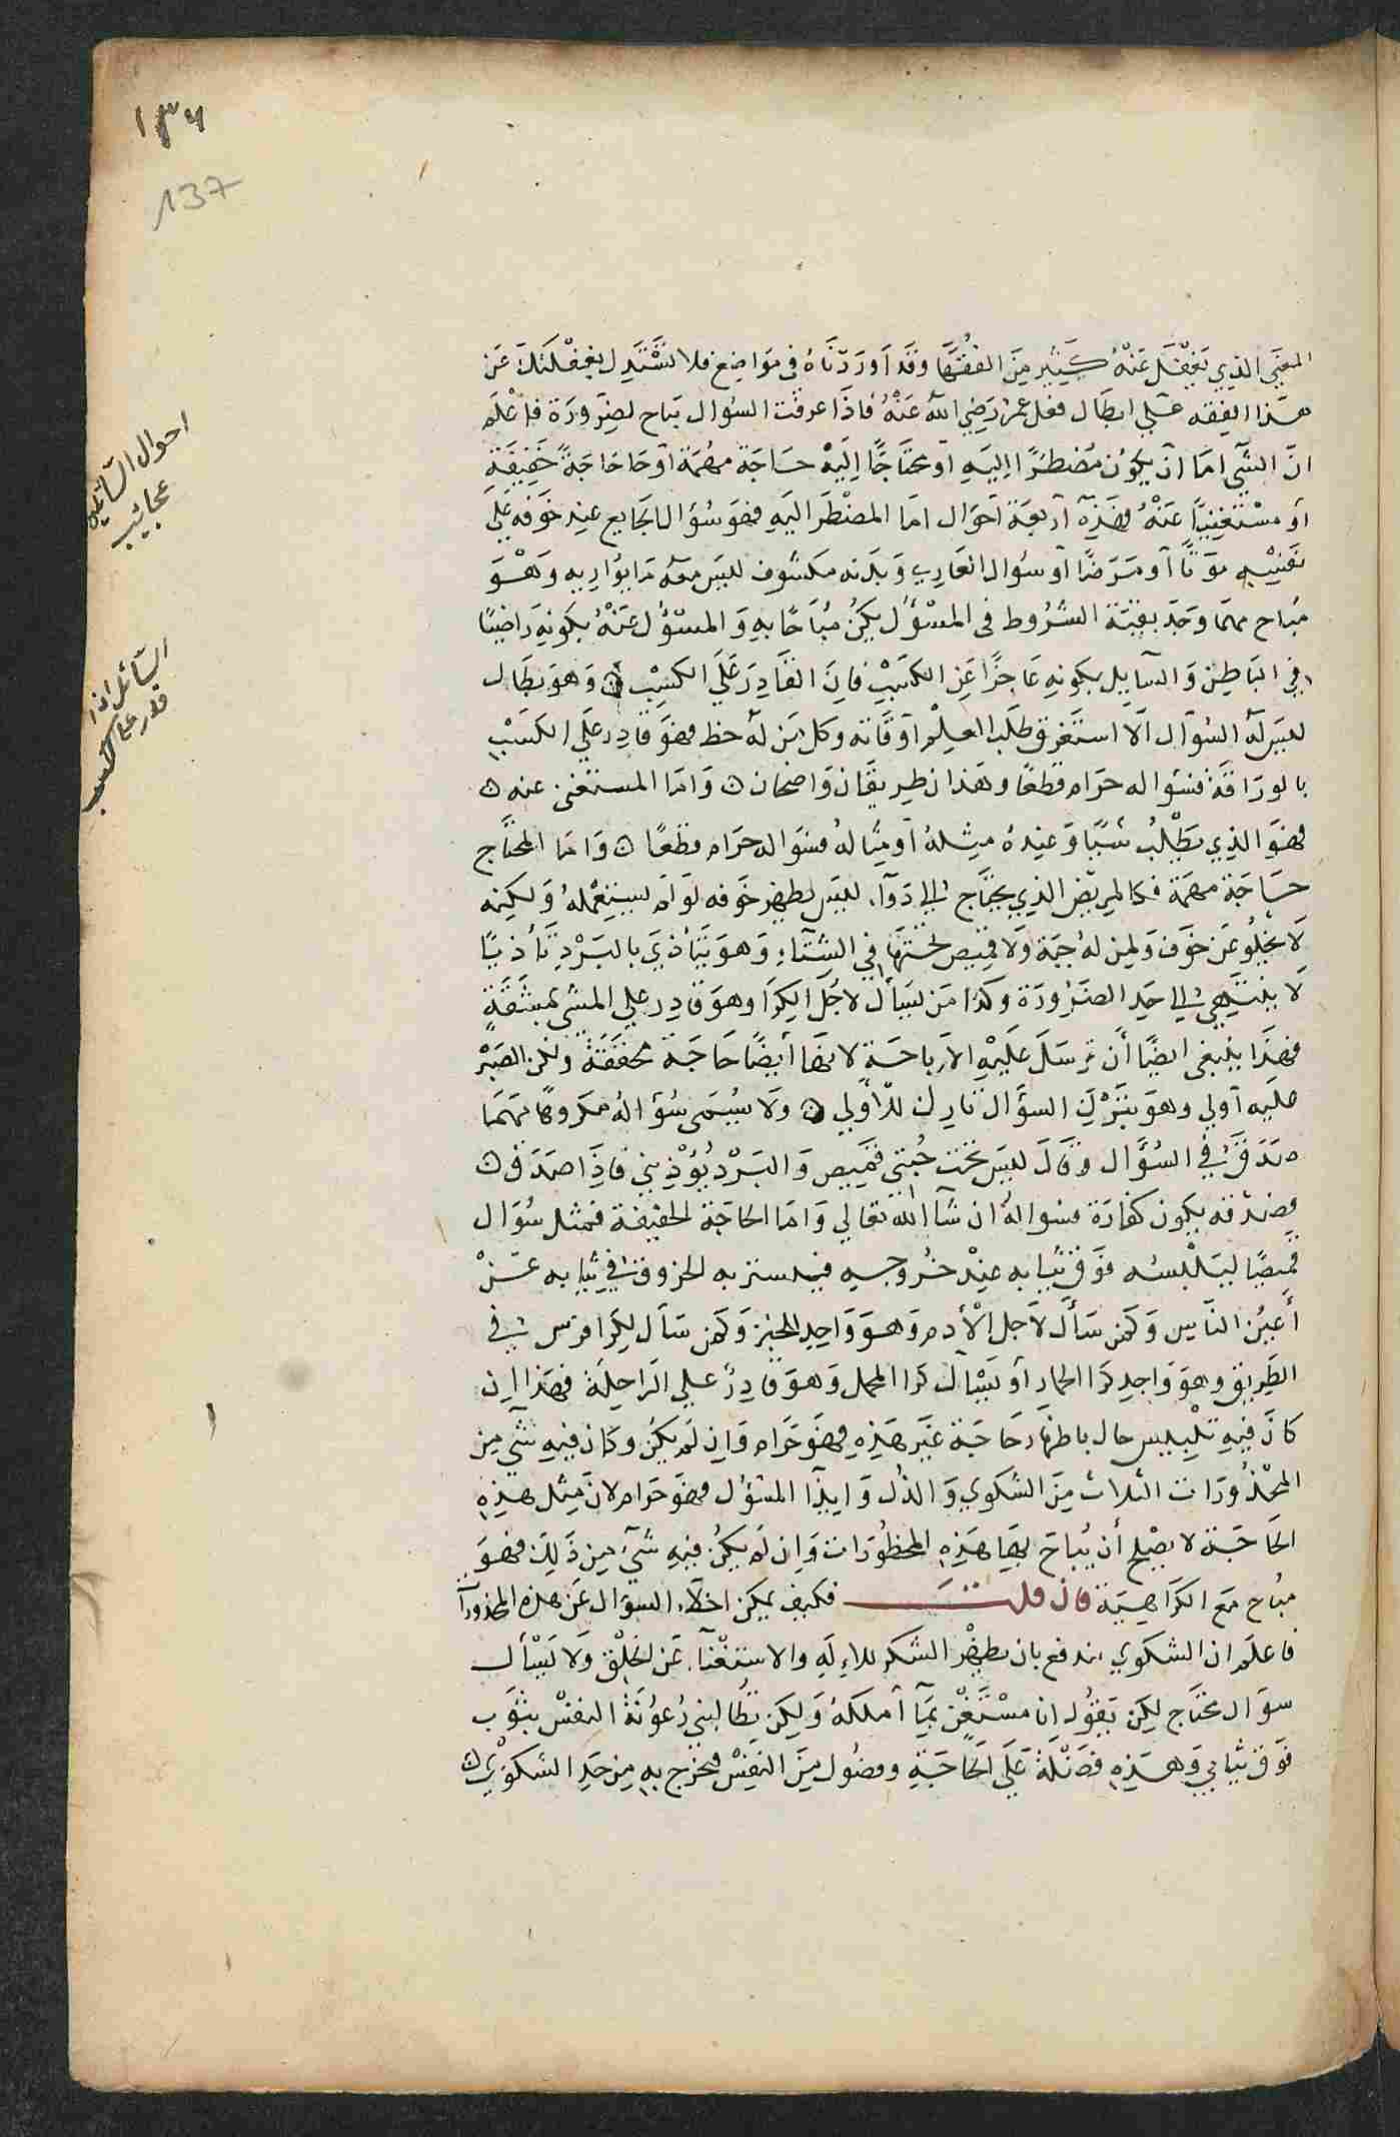 ١٣٦
137
المعنى الذي يغفل عنه كثير من الفقها وقد اوردناه في مواضع فلا تستدل بغفلتك عن
هذا الفقه على ابطال فعل عمر رضي الله عنه فاذا عرفت السؤال يباح لضرورة فاعلم
ان الشي اما ان يكون مضطرا اليه او محتاجا اليه حاجة مهمة او حاجة خفيفة
او مستغنيا عنه فهذه اربعة احوال اما المضطر اليه فهو سؤال الجايع عند خوفه على
نفسه موتا او مرضا او سوال العاري وبدنه مكشوف ليس معه ما يواريه وهو
مباح مهما وجد بقية الشروط في المسؤل يكن مباحا به والمسؤل عنه بكونه راضيا
في الباطن والسايل بكونه عاجزا عن الكسب فان القادر على الكسب وهو بطال
ليس له السؤال الا استغرق طلب العلم اوقاته وكل من له خط فهو قادر على الكسب
بالوراقة فسؤاله حرام قطعا وهذان طريقان واضحان واما المستغنى عنه
فهو الذي يطلب شيا وعنده مثله او مثاله فسواله حرام قطعا واما المحتاج
حاجة مهمة فكالمريض الذي يحتاج الى دوآء ليس يظهر خوفه لو لم يستعمله ولكنه
لا يخلو عن خوف ولمن له جبة ولا قميص تحتها في الشتاء وهو يتأذي بالبرد تأذيا
لا ينتهي الى حد الضرورة وكذا من يسأل لاجل الكرا وهو قادر علي المشى بمشقة
فهذا ينبغى ايضا أن ترسل عليه الاباحة لانها أيضا حاجة محققة ولكن الصبر
عليه اولي وهو بترك السؤال تارك للأولي ولا يسمى سؤاله مكروها مهما
صدق في السؤال وقال ليس تحت جبتى قميص والبرد يؤذيني فاذا صدق
فصدقه يكون كفارة سواله ان شاالله تعالي واما الحاجة الخفيفة فمثل سؤال
قميصا ليلبسه فوق ثيابه عند خروجه فيستر به الخروق في ثيابه عن
أعين الناس وكمن سأل لاجل الأدم وهو واجد الخبز وكمن سأل لكرا فرس في
الطريق وهو واجد كرا الحمار او يسأل كرا المحمل وهو قادر على الراحلة فهذا ان
كان فيه تلبيس حال باظهار حاجة غير هذه فهو حرام وان لم يكن وكان فيه شي من
المحذورات الثلاث من الشكوي والذل وايذا المسؤل فهو حرام لان مثل هذه
الحاجة لا يصلح أن يباح بها هذه المحظورات وان لم يكن فيه شئ من ذلك فهو
مباح مع الكراهية فان قلت فكيف يمكن اخلاء السؤال عن هذه المحذورآ
فاعلم ان الشكوي يندفع بان يظهر الشكر لله والاستغنآء عن الخلق ولا يسأل
سوال محتاج لكن يقول انا مستغن بمآ املكه ولكن تطالبني رعونة النفس بثوب
فوق ثيابي وهذه فضلة على الحاجة وفضول من النفس فيخرج به من حد الشكوي
احوال السائلين
عجائب
السائل اذا
قدر على الكسب